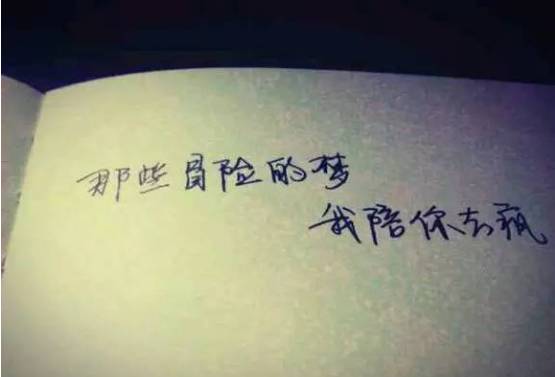 那些冒险的梦
我陪你去疯